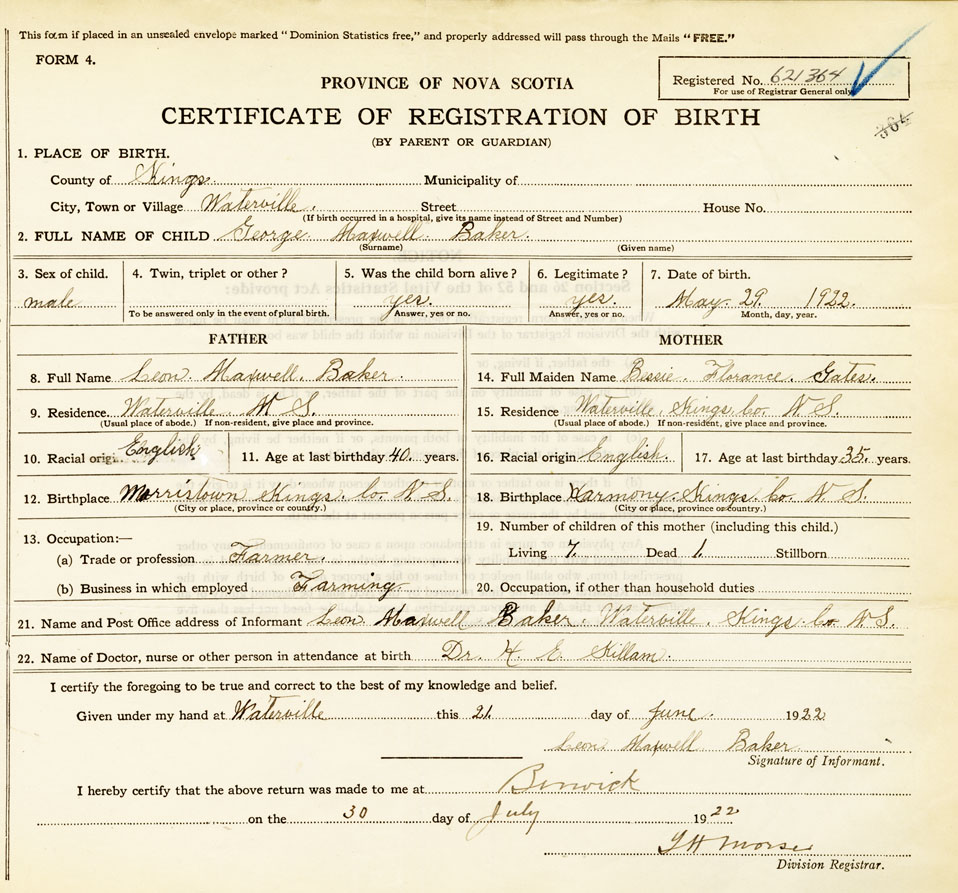 This form if placed in an unsealed envelope marked "Dominion Statistics free," and properly addressed will pass through the Mails "FREE."
FORM 4.
Registered No. 621364
For use of Registrar General only
364
PROVINCE OF NOVA SCOTIA
CERTIFICATE OF REGISTRATION OF BIRTH
(BY PARENT OR GUARDIAN)
1. PLACE OF BIRTH.
County of Kings Municipality of
City, Town or Village Waterville. Street House No.
(If birth occurred in a hospital, give its name instead of Street and Number)
2. FULL NAME OF CHILD George Maxwell Baker.
(Surname) (Given name)
3. Sex of child. 4. Twin, triplet or other? 5. Was the child born alive? 6. Legitimate? 7. Date of birth.
male yes. yes. May. 29. 1922.
To be answered only in the event of plural birth. Answer, yes or no. Answer, yes or no. Month, day, year.
FATHER MOTHER
8. Full Name Leon Maxwell. Baker.
9. Residence. Waterville. N S.
(Usual place of abode.) If non-resident, give place and province.
10. Racial origi English 11. Age at last birthday 40. years.
12. Birthplace Morristown Kings. Co. N. S.
(City or place, province or country.)
13. Occupation:—
(a) Trade or profession Farmer.
(b) Business in which employed Farming
14. Full Maiden Name Bessie Florance. Gates.
15. Residence Waterville. Kings. Co. N S.
(Usual place of abode.) If non-resident, give place and province.
16. Racial origin English. 17. Age at last birthday 35. years.
18. Birthplace Harmony. Kings. Co. N S.
(City or place, province or country.)
19. Number of children of this mother (including this child.)
Living 7. Dead 1. Stillborn
20. Occupation, if other than household duties
21. Name and Post Office address of Informant Leon Maxwell Baker. Waterville. Kings. Co. N S.
22. Name of Doctor, nurse or other person in attendance at birth Dr. H. E. Killam.
I certify the foregoing to be true and correct to the best of my knowledge and belief.
Given under my hand at Waterville this 21. day of June. 1922
Leon Maxwell Baker.
Signature of Informant.
I hereby certify that the above return was made to me at Berwick
on the 30 day of July 1922
Morse
Division Registrar.